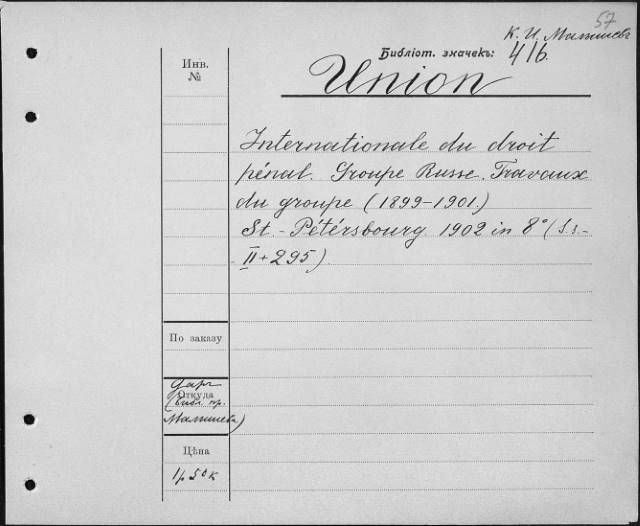 57
К. И. Малышевъ
Библіот. значекъ: 416.
Инв.
№
Union
Internationale du droit
pénal. Groupe Russe. Travaux
du groupe (1899-1901.)
St.-Pétérsbourg. 1902 in 8° (S.s.-
- II + 295).
По заказу
Даръ
Откуда
(Библ. пр.
Малышева)
Цѣна
1р 50к